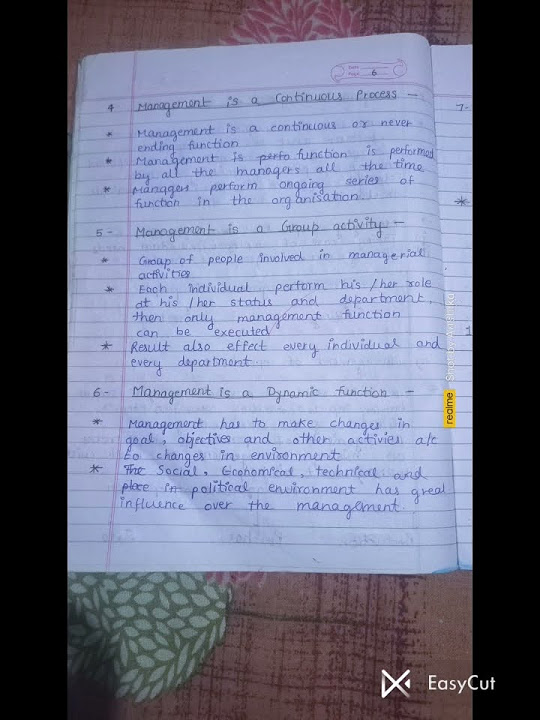 Page 6
4 Management is a Continuous Process -
* Management is a continuous or never
ending function
* Management is perfo function is performed
by all the managers all the time
* Managers perform ongoing series of
function in the organisation
5- Management is a Group activity -
* Group of people involved in managerial
activities
* Each individual perform his/her role
at his/her status and department,
then only management function
can be executed
* Result also effect every individual and
every department
6- Management is a Dynamic function -
* Management has to make changes in
goal, objectives and other activies a/c
to changes in environment
* The Social, Economical, technical and
place in political environment has great
influence over the management.
7-
*
1
realme Shot by
EasyCut